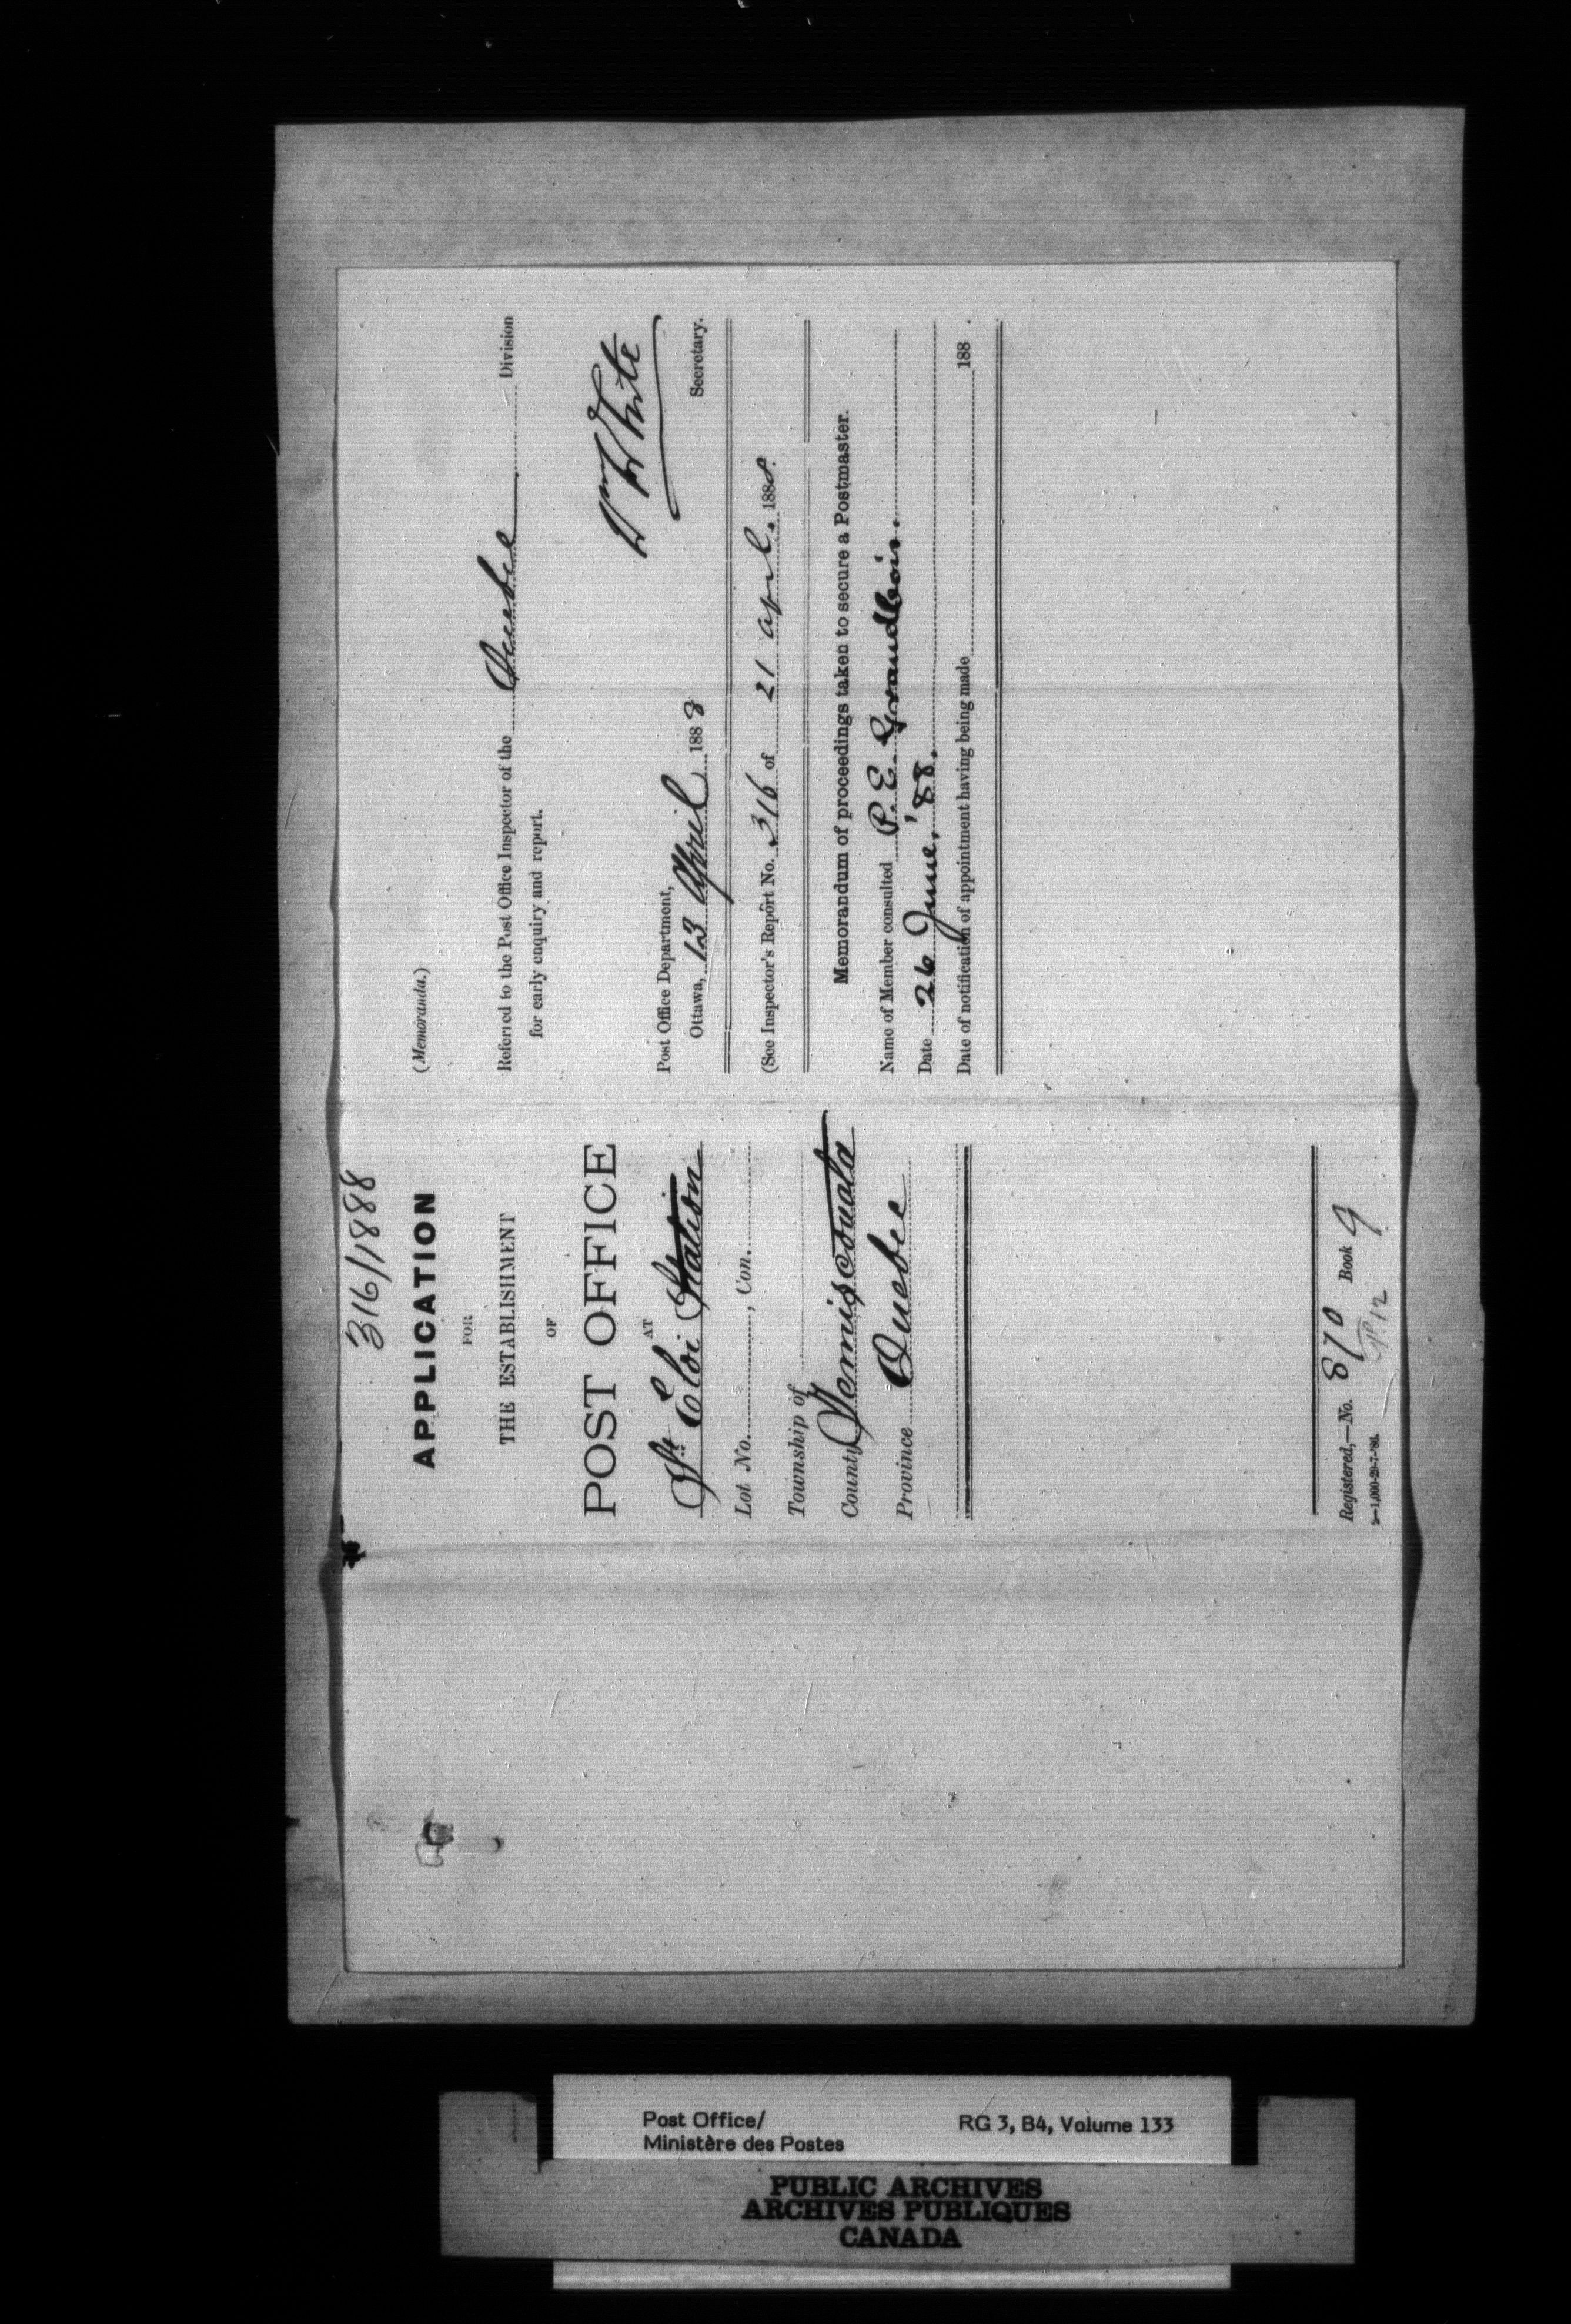 316/1888
APPLICATION
FOR
THE ESTABLISHMENT
OF
POST OFFICE
AT
St Eloi Station
Lot No. , Con.
Township of
County Temiscouata
Province Quebec
Registered,—No. 870 Book 9
2—1,000-29-7-'86.
(Memoranda.)
Referred to the Post Office Inspector of the Quebec Division
for early enquiry and report.
Wm White
Secretary.
Post Office Department,
Ottawa, 13 April 1888
(See Inspector's Report No. 316 of 21 April. 1888.
Memorandum of proceedings taken to secure a Postmaster.
Name of Member consulted P. E. Grandbois.
Date 26 June, '88.
Date of notification of appointment having being made 188 .
Post Office/
Ministère des Postes
RG 3, B4, Volume 133
PUBLIC ARCHIVES
ARCHIVES PUBLIQUES
CANADA